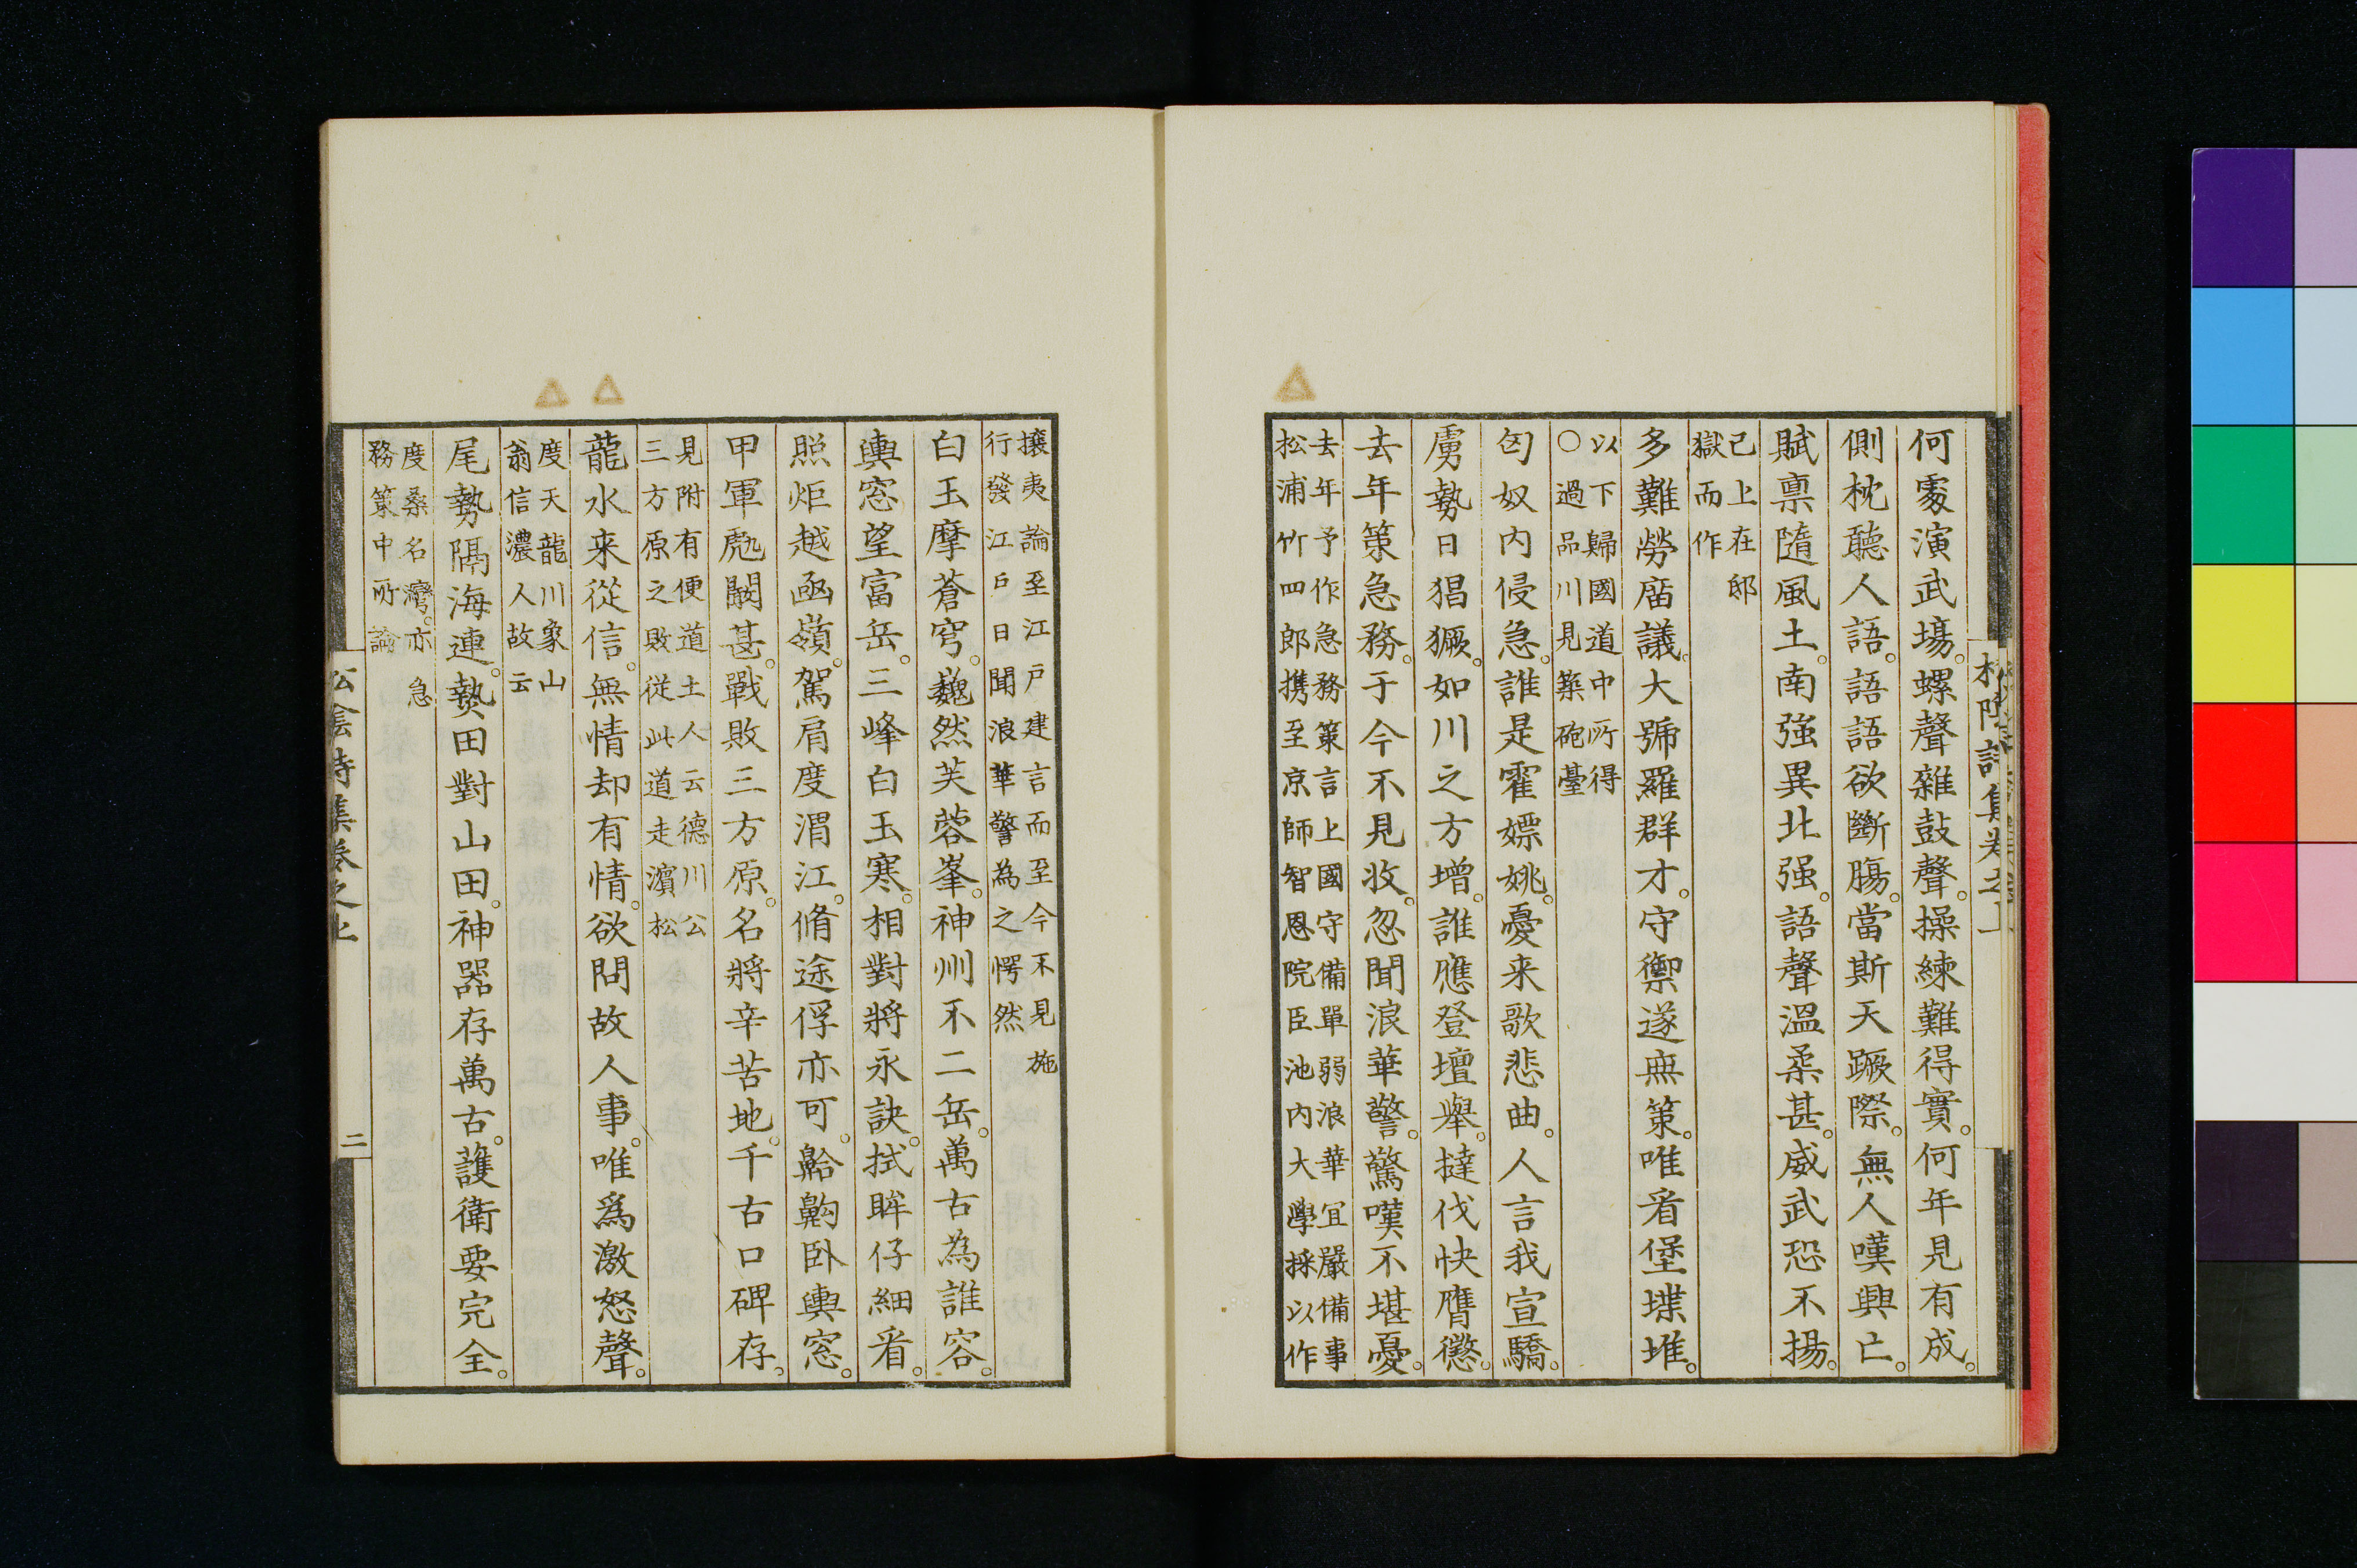 何處演武場。螺聲雜鼓聲。操練難得實。何年見有成。
側枕聽人語。語語欲斷膓。當斯天蹶際。無人嘆興亡。
賦禀隨風土。南強異北强。語聲溫柔甚。威武恐不揚。
已上在邸
獄而作
多難勞庿議。大號羅群才。守禦遂無策。唯看堡堞堆。
以下歸國道中所得
○過品川見築砲臺
匈奴内侵急。誰是霍嫖姚。憂来歌悲曲。人言我宣驕。
虜勢日猖獗。如川之方增。誰應登壇舉。撻伐快膺懲。
去年策急務。于今不見收。忽聞浪華警。驚嘆不堪憂。
去年予作急務策言上國守備單弱浪華宜嚴備事
松浦竹四郎携至京師智恩院臣池内大學採以作
攘夷論至江戸建言而至今不見施
行發江戸日聞浪華警為之愕然
白玉摩蒼穹。巍然芙蓉峯。神州不二岳。萬古為誰容。
輿窓望富岳。三峰白玉寒。相對將永訣。拭眸仔細看。
照炬越凾嶺。駕肩度渭江。脩途俘亦可。鼾齁卧輿窓。
甲軍虓闞甚。戰敗三方原。名將辛苦地。千古口碑存。
見附有便道土人云德川公
三方原之敗從此道走濵松
龍水来從信。無情却有情。欲問故人事。唯爲激怒聲。
度天龍川象山
翁信濃人故云
尾勢隔海連。熱田對山田。神器存萬古。護衛要完全。
度桑名灣。亦急
務策中所論
公侌詩集卷之上
二